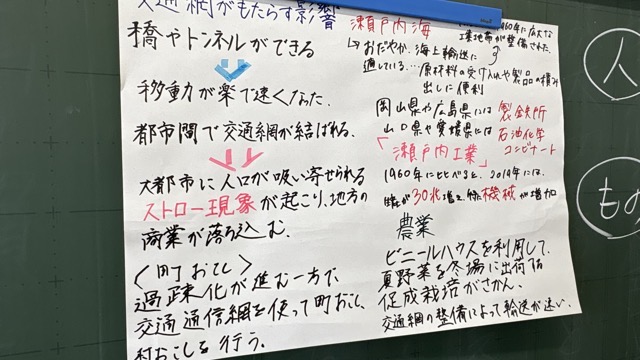 交通網がもたらす影響
橋やトンネルができる
移動が楽で速くなった.
都市間で交通網が結ばれる.
大都市に人口が吸い寄せられる
ストロー現象が起こり、地方の
商業が落ち込む.
〈町おこし〉
過疎化が進む一方で、
交通通信網を使って町おこし、
村おこしを行う.
瀬戸内海
1960年に広大な
工業地帯が整備された.
↳おだやか. 海上輸送に
適している… 原材料の受け入れや製品の積み
出しに便利
岡山県や広島県には 製鉄所
山口県や愛媛県には 石油化学
コンビナート
「瀬戸内工業」
1960年に比べると、2019年には、
機械が増加
農業
ビニールハウスを利用して、
夏野菜を冬場に出荷する
促成栽培がさかん.
交通網の整備によって輸送が速い.
人